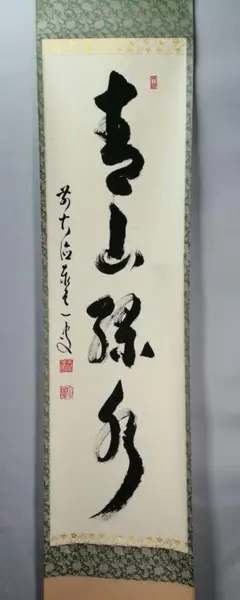 青山緑水
前大徳